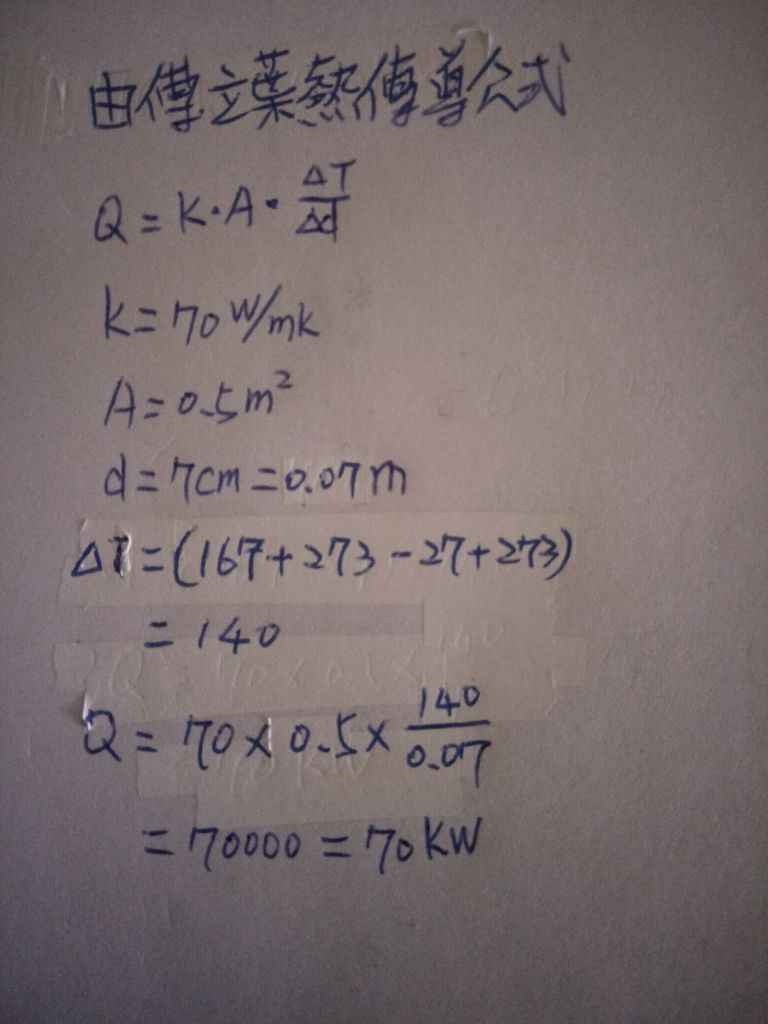 由傅立葉熱傳導公式
Q = K·A·ΔT/Δd
k = 70 W/mk
A = 0.5 m²
d = 7cm = 0.07 m
ΔT = (167+273-27+273)
= 140
Q = 70 × 0.5 × 140/0.07
= 70000 = 70 KW